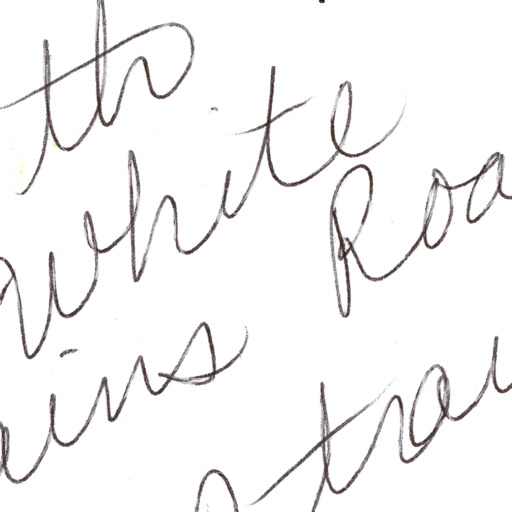 th
White Roa
ains
trai